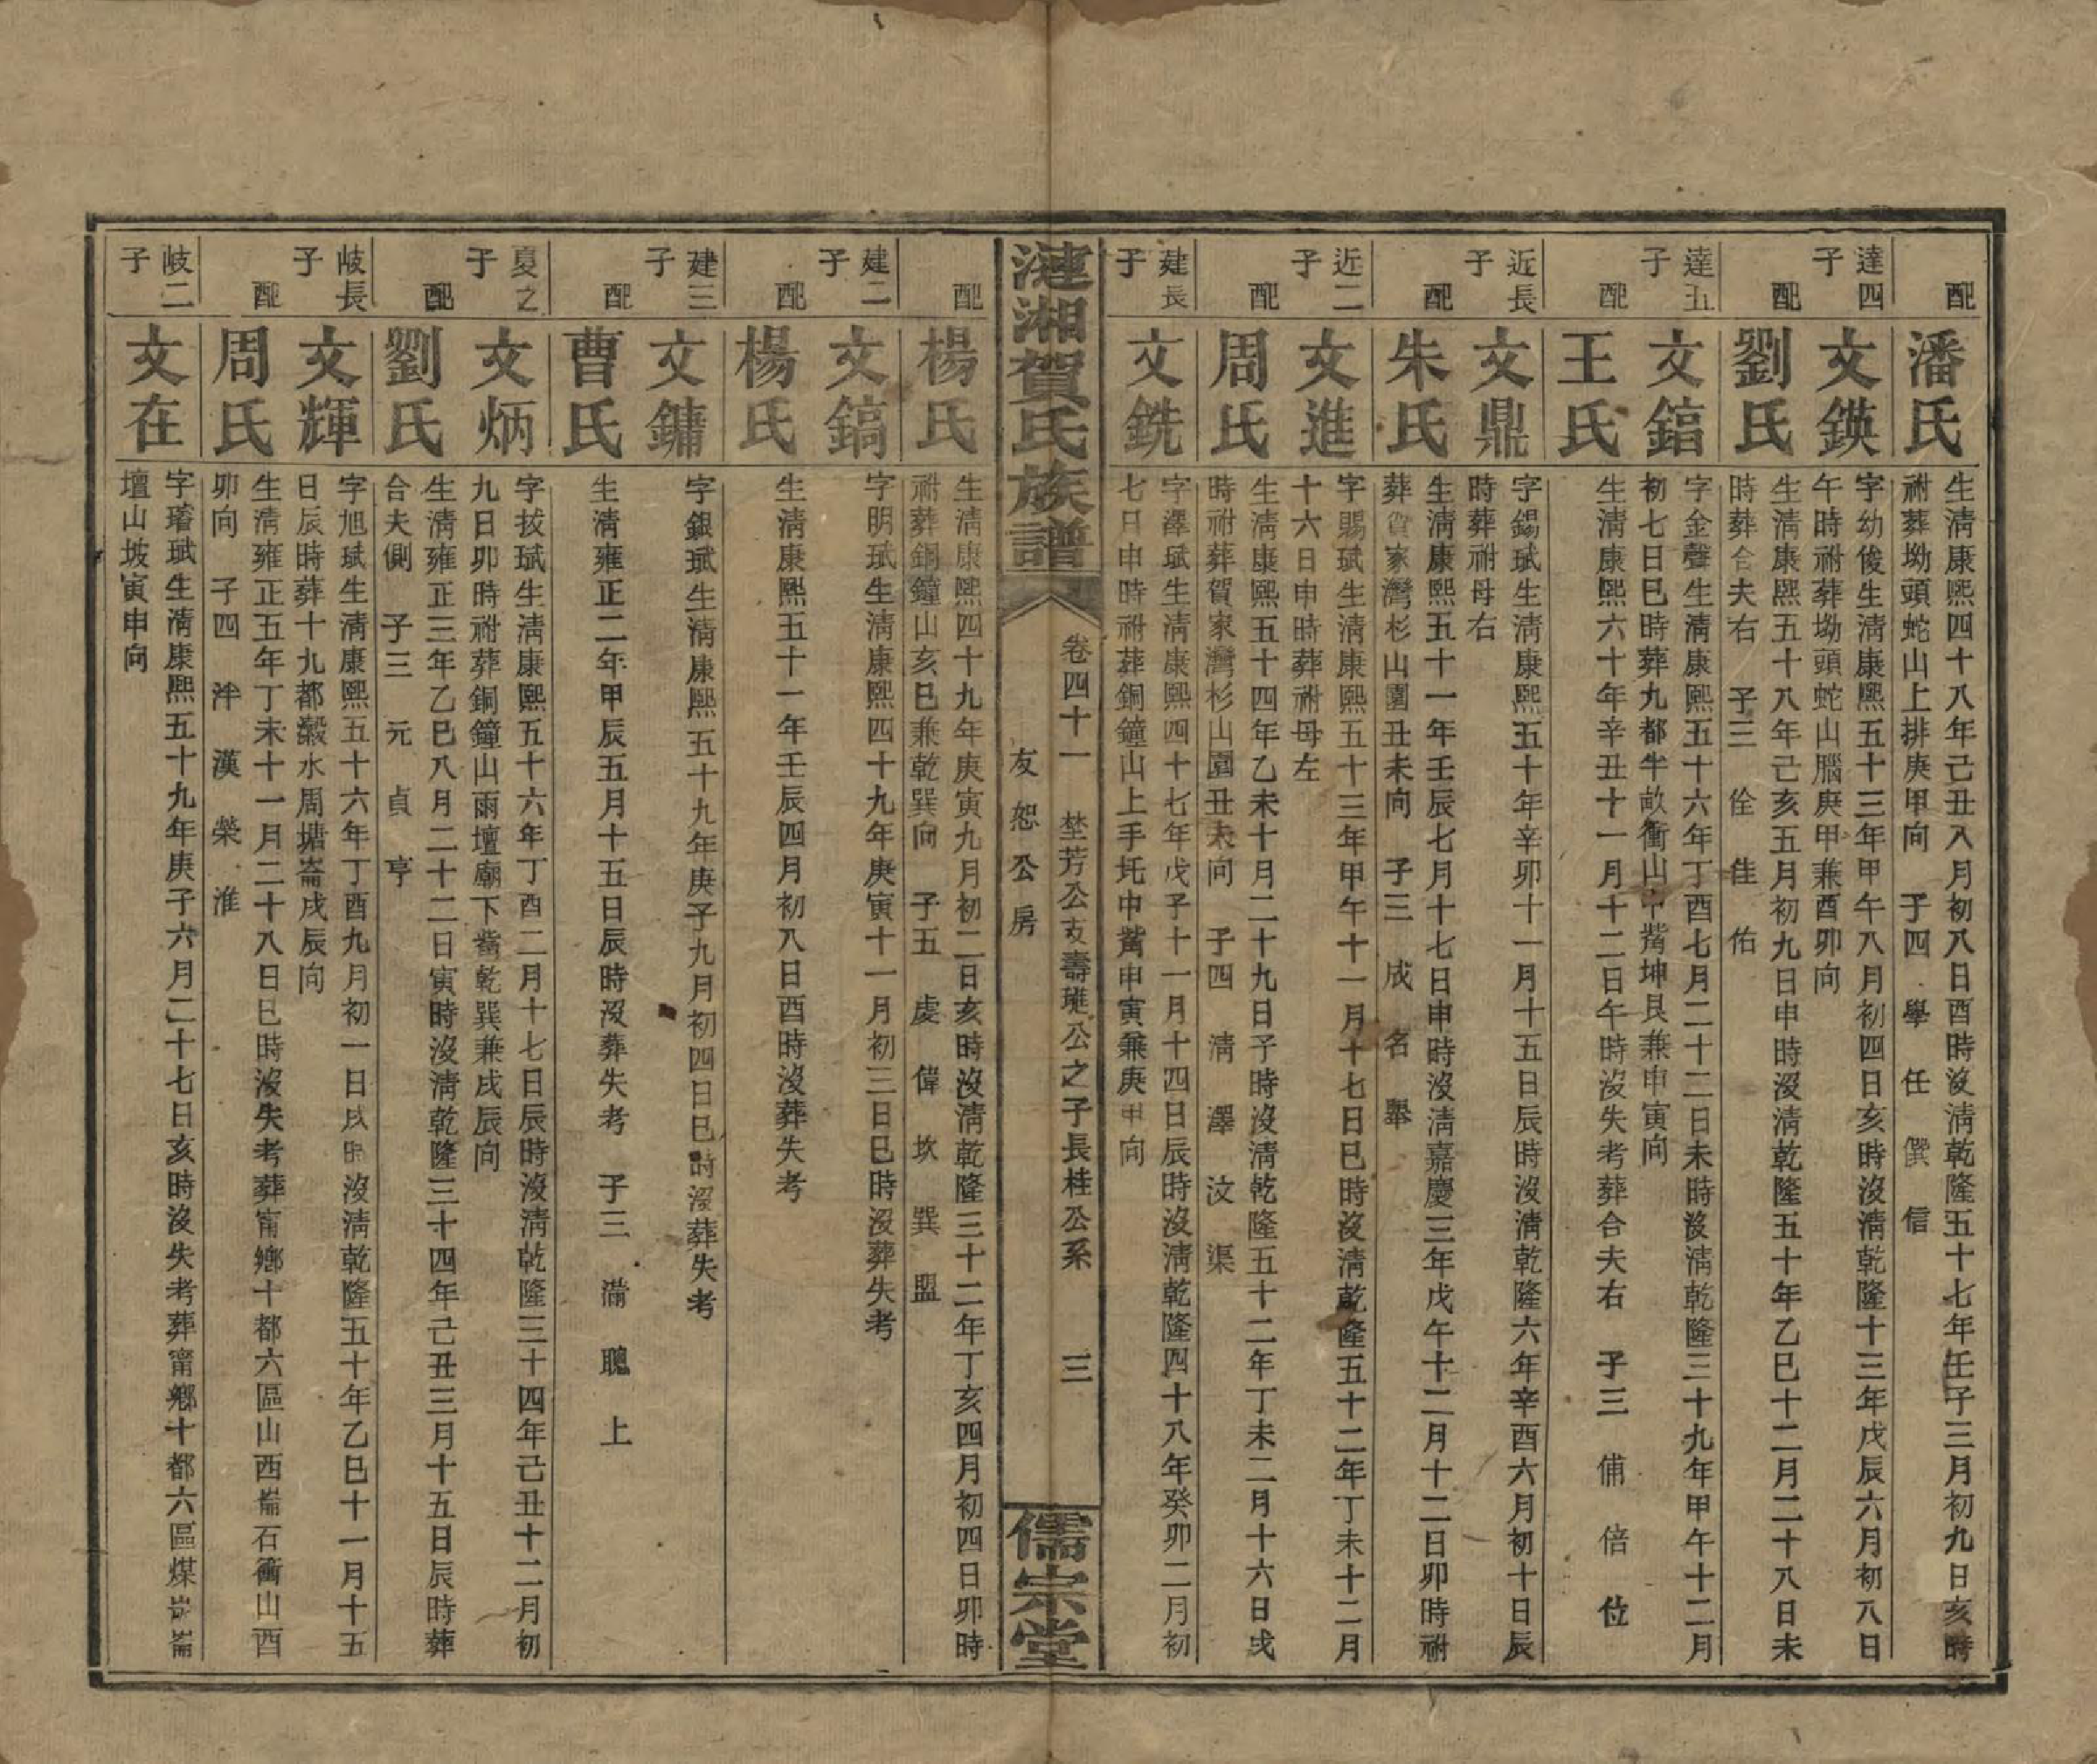 配
潘氏
生淸康熙四十八年己丑八月初八日酉時沒淸乾隆五十七年壬子三月初九日亥時
祔葬坳頭蛇山上排庚甲向　子四　學　任　僎　信
達四子
文鍈
字幼俊生淸康熙五十三年甲午八月初四日亥時沒淸乾隆十三年戊辰六月初八日
午時祔葬坳頭蛇山腦庚甲兼酉卯向
配
劉氏
生淸康熙五十八年己亥五月初九日申時沒淸乾隆五十年乙巳十二月二十八日未
時葬合夫右　子三　佺　佳　佑
達五子
文鎬
字金聲生淸康熙五十六年丁酉七月二十二日未時沒淸乾隆三十九年甲午十二月
初七日巳時葬九都半畝衝山中觜坤艮兼申寅向
配
王氏
生淸康熙六十年辛丑十一月十二日午時沒失考葬合夫右　子三　俌　倍　位
近長子
文鼎
字錫珷生淸康熙五十年辛卯十一月十五日辰時沒淸乾隆六年辛酉六月初十日辰
時葬祔母右
配
朱氏
生淸康熙五十一年壬辰七月十七日申時沒淸嘉慶三年戊午十二月十二日卯時祔
葬賀家灣杉山園丑未向　子三　成　名　舉
近二子
文進
字賜珷生淸康熙五十三年甲午十一月十七日巳時沒淸乾隆五十二年丁未十二月
十六日申時葬祔母左
配
周氏
生淸康熙五十四年乙未十月二十九日子時沒淸乾隆五十二年丁未二月十六日戌
時祔葬賀家灣杉山園丑未向　子四　淸　澤　汶　渠
建長子
文銑
字澤珷生淸康熙四十七年戊子十一月十四日辰時沒淸乾隆四十八年癸卯二月初
七日申時祔葬銅鐘山上手圫中觜申寅兼庚甲向
漣湘賀氏族譜
卷四十一　埜芳公支壽璡公之子長桂公系　三
友恕公房
儒宗堂
配
楊氏
生淸康熙四十九年庚寅九月初二日亥時沒淸乾隆三十二年丁亥四月初四日卯時
祔葬銅鐘山亥巳兼乾巽向　子五　虔　偉　坎　巽　盟
建二子
文鎬
字明珷生淸康熙四十九年庚寅十一月初三日巳時沒葬失考
配
楊氏
生淸康熙五十一年壬辰四月初八日酉時沒葬失考
建三子
文鏞
字銀珷生淸康熙五十九年庚子九月初四日巳時沒葬失考
配
曹氏
生淸雍正二年甲辰五月十五日辰時沒葬失考　子三　滿　聰　上
夏之子
文炳
字拔珷生淸康熙五十六年丁酉二月十七日辰時沒淸乾隆三十四年己丑十二月初
九日卯時祔葬銅鐘山雨壇廟下觜乾巽兼戌辰向
配
劉氏
生淸雍正三年乙巳八月二十二日寅時沒淸乾隆三十四年己丑三月十五日辰時葬
合夫側　子三　元　貞　亨
岐長子
文輝
字旭珷生淸康熙五十六年丁酉九月初一日戌時沒淸乾隆五十年乙巳十一月十五
日辰時葬十九都縠水周塘崙戌辰向
配
周氏
生淸雍正五年丁未十一月二十八日巳時沒失考葬甯鄉十都六區山西崙石衝山酉
卯向　子四　泮　漢　榮　淮
岐二子
文在
字璿珷生淸康熙五十九年庚子六月二十七日亥時沒失考葬甯鄉十都六區煤崀崙
壇山坡寅申向